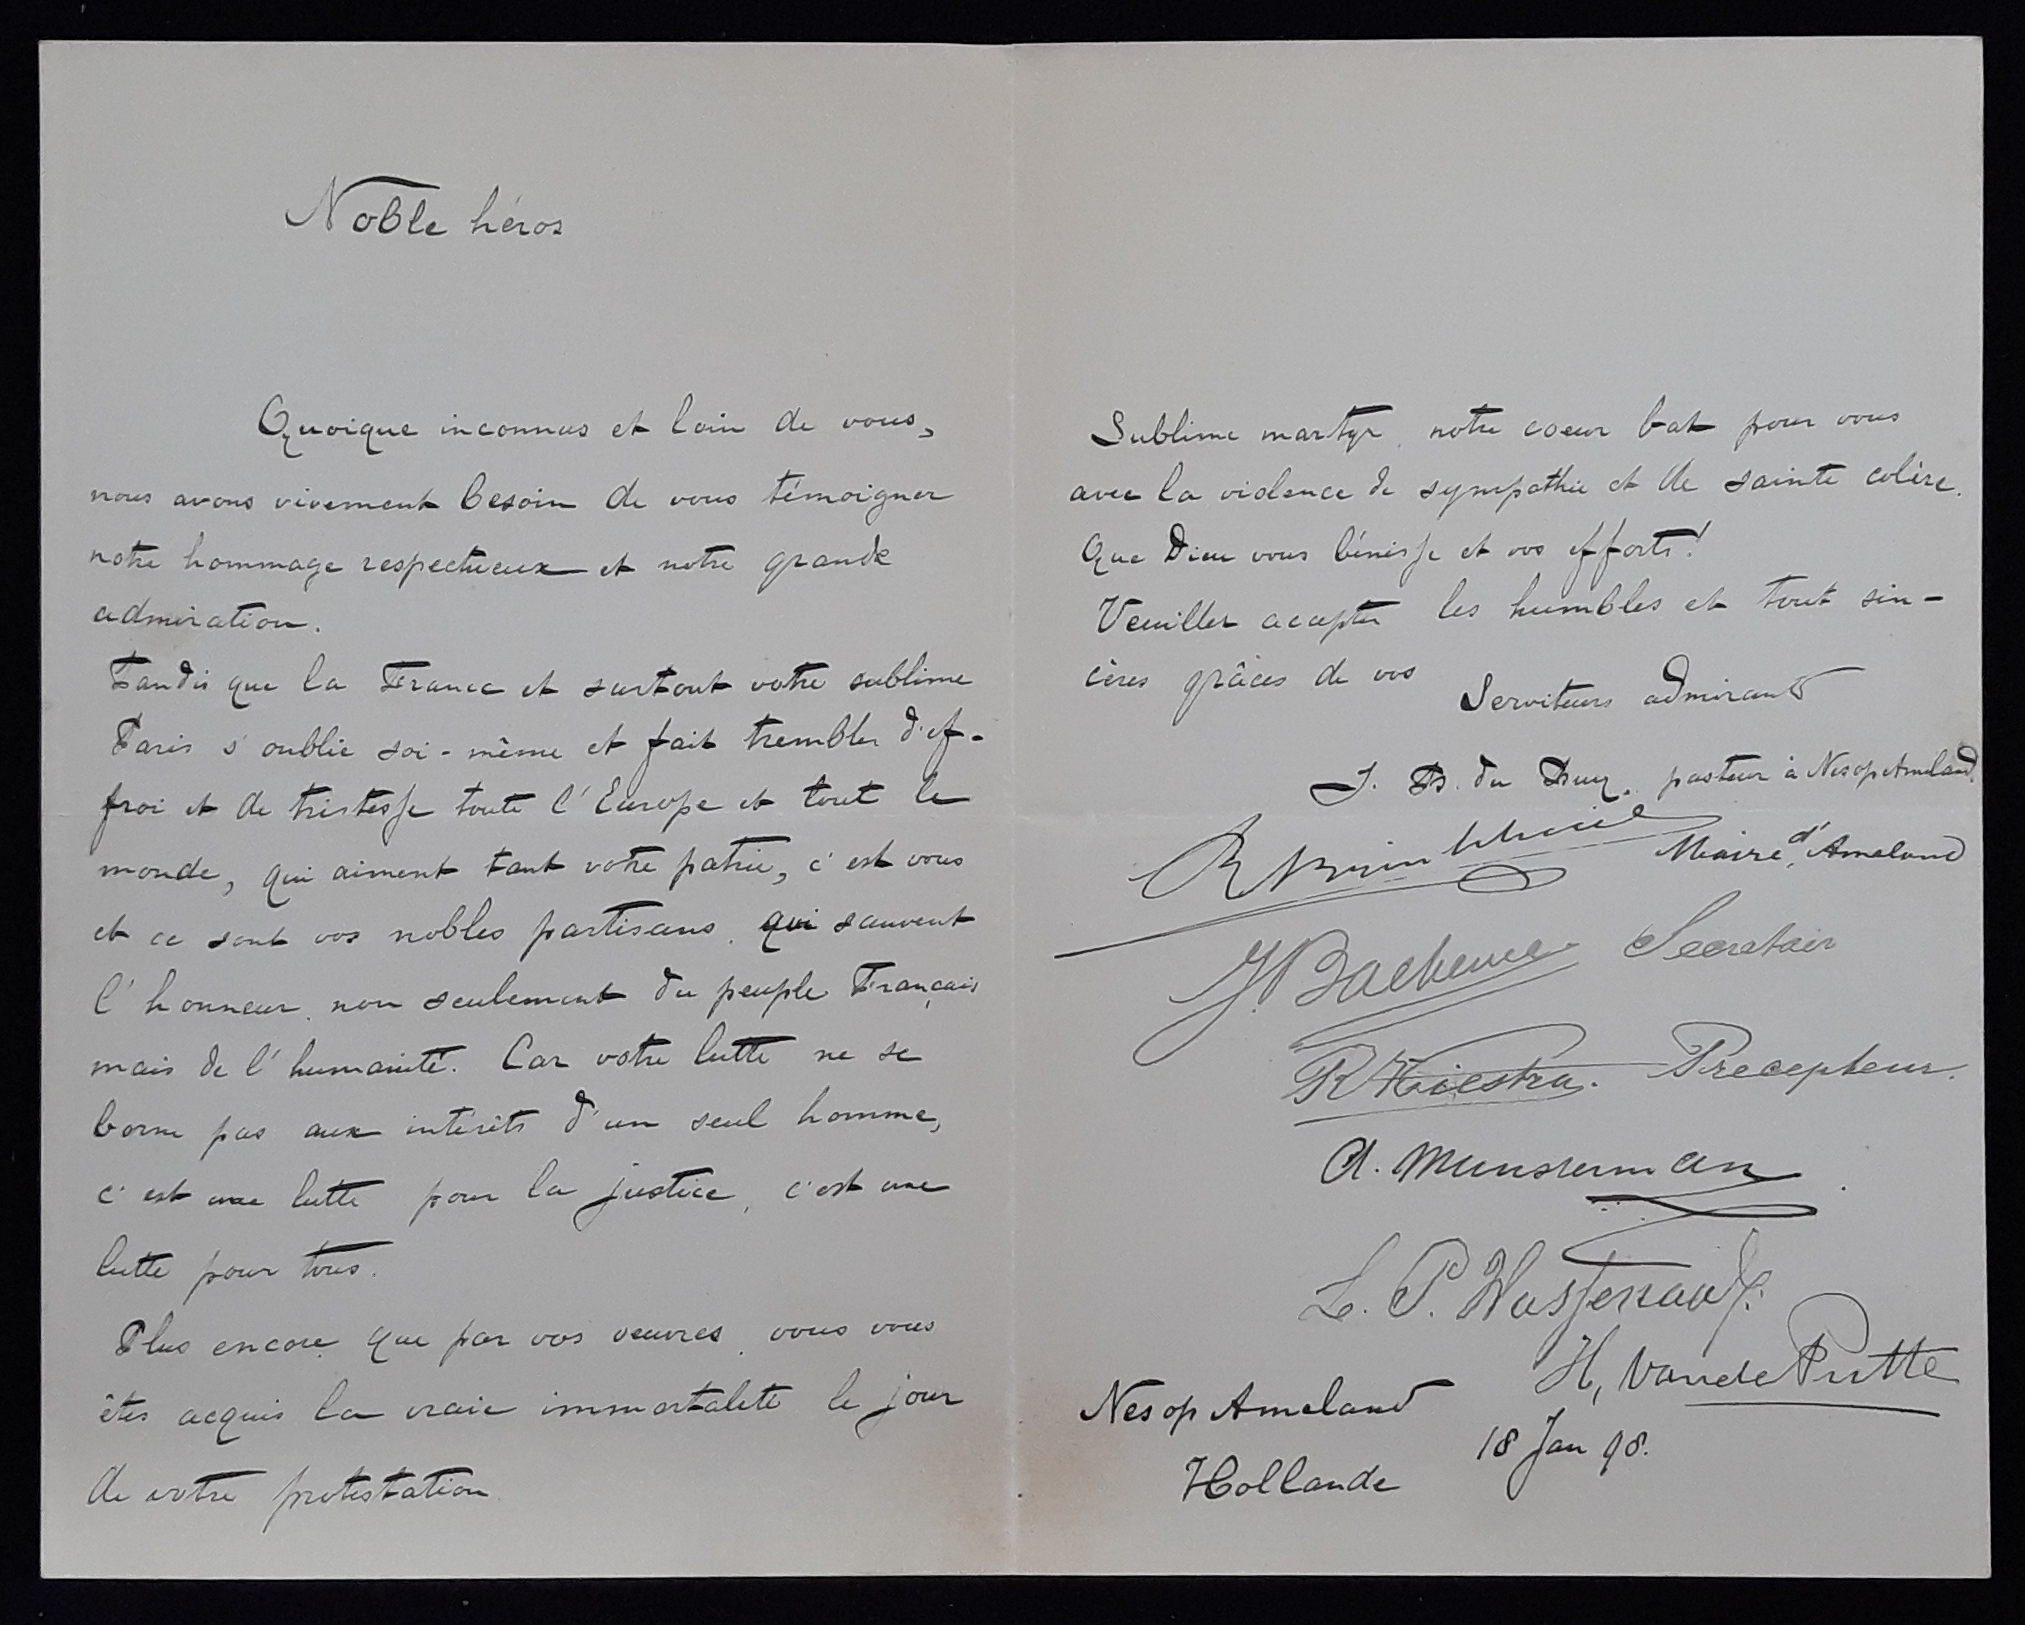 Noble héros
Quoique inconnus et loin de vous,
nous avons vivement besoin de vous témoigner
notre hommage respectueux et notre grande
admiration.
Tandis que la France et surtout votre sublime
Paris s'oublie soi-même et fait trembler d'ef-
froi et de tristesse toute l'Europe et tout le
monde, qui aiment tant votre patrie, c'est vous
et ce sont vos nobles partisans, qui sauvent
l'honneur, non seulement du peuple Français
mais de l'humanité. Car votre lutte ne se
borne pas aux intérêts d'un seul homme,
c'est une lutte pour la justice, c'est une
lutte pour tous.
Plus encore que par vos oeuvres, vous vous
êtes acquis la vraie immortalité le jour
de votre protestation
Sublime martyr, notre coeur bat pour vous
avec la violence de sympathie et de sainte colère.
Que Dieu vous bénisse et vos efforts!
Veuillez accepter les humbles et tout sin-
cères grâces de vos
Serviteurs admirants
pasteur à Nes op Ameland.
Maire d'Ameland
Secretair
Precepteur.
A. Munsterman
L. P. Wassenaar
H, van de Putte
Nes op Ameland
18 Jan 98.
Hollande